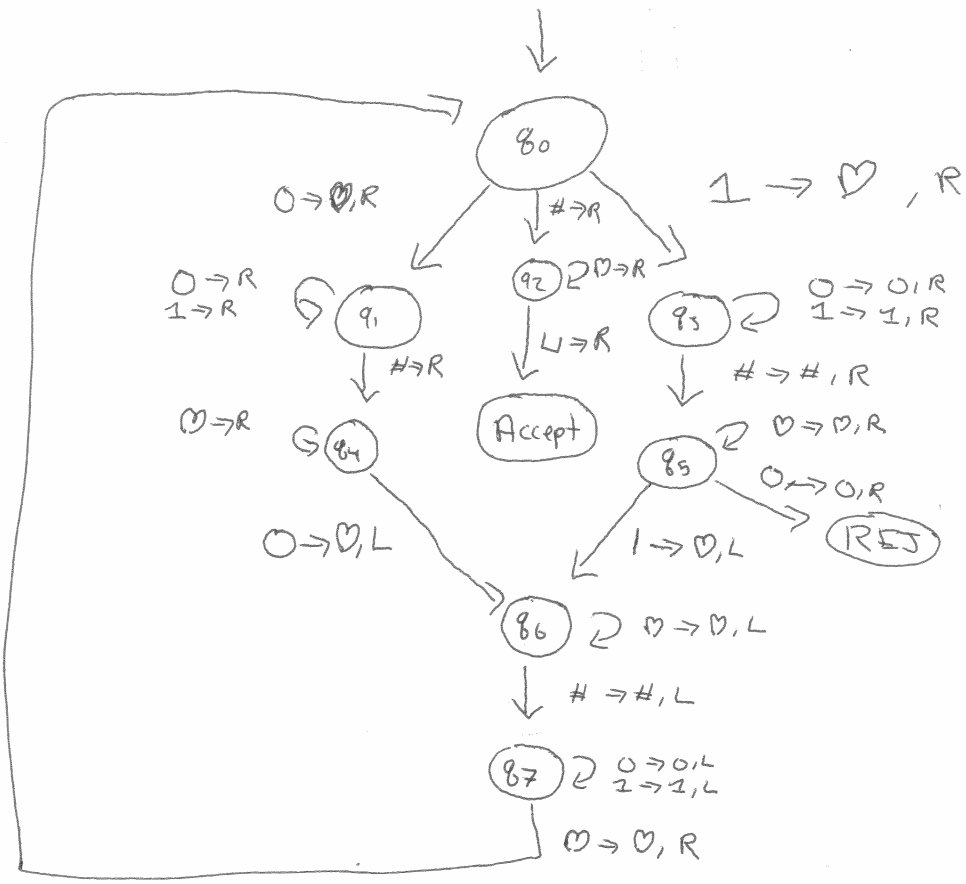 q0
0→♡,R
#→R
1 → ♡ , R
0→R
1→R
q1
q2
♡→R
q3
0→0,R
1→1,R
#→R
⊔→R
#→#,R
♡→R
q4
Accept
q5
♡→♡,R
0→0,R
REJ
0→♡,L
1→♡,L
q6
♡→♡,L
#→#,L
q7
0→0,L
1→1,L
♡→♡,R